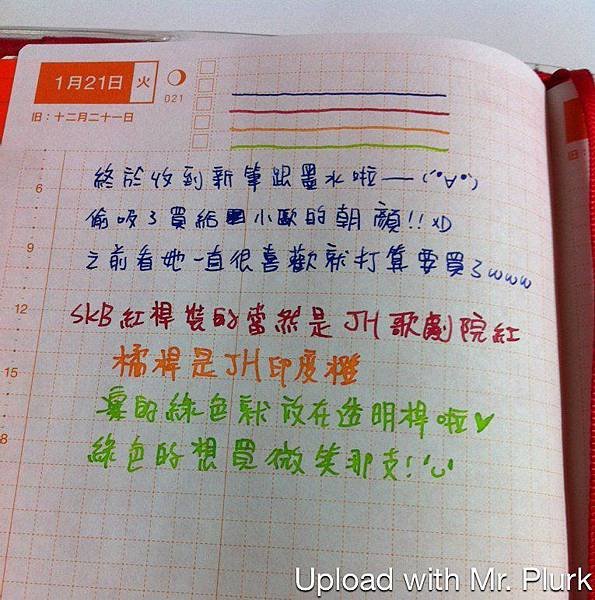 1月21日 火
021
旧：十二月二十一日
6
終於收到新筆跟墨水啦——(･∀･)
偷吸了買給小歐的朝顏!! XD
9
之前看她一直很喜歡就打算要買了www
12
SKB紅桿裝的當然是JH歌劇院紅
橘桿是JH印度橙
15
裏的綠色就放在透明桿啦♥
8
綠色的想買微笑那支! ･ᴗ･
旧:
Upload with Mr. Plurk